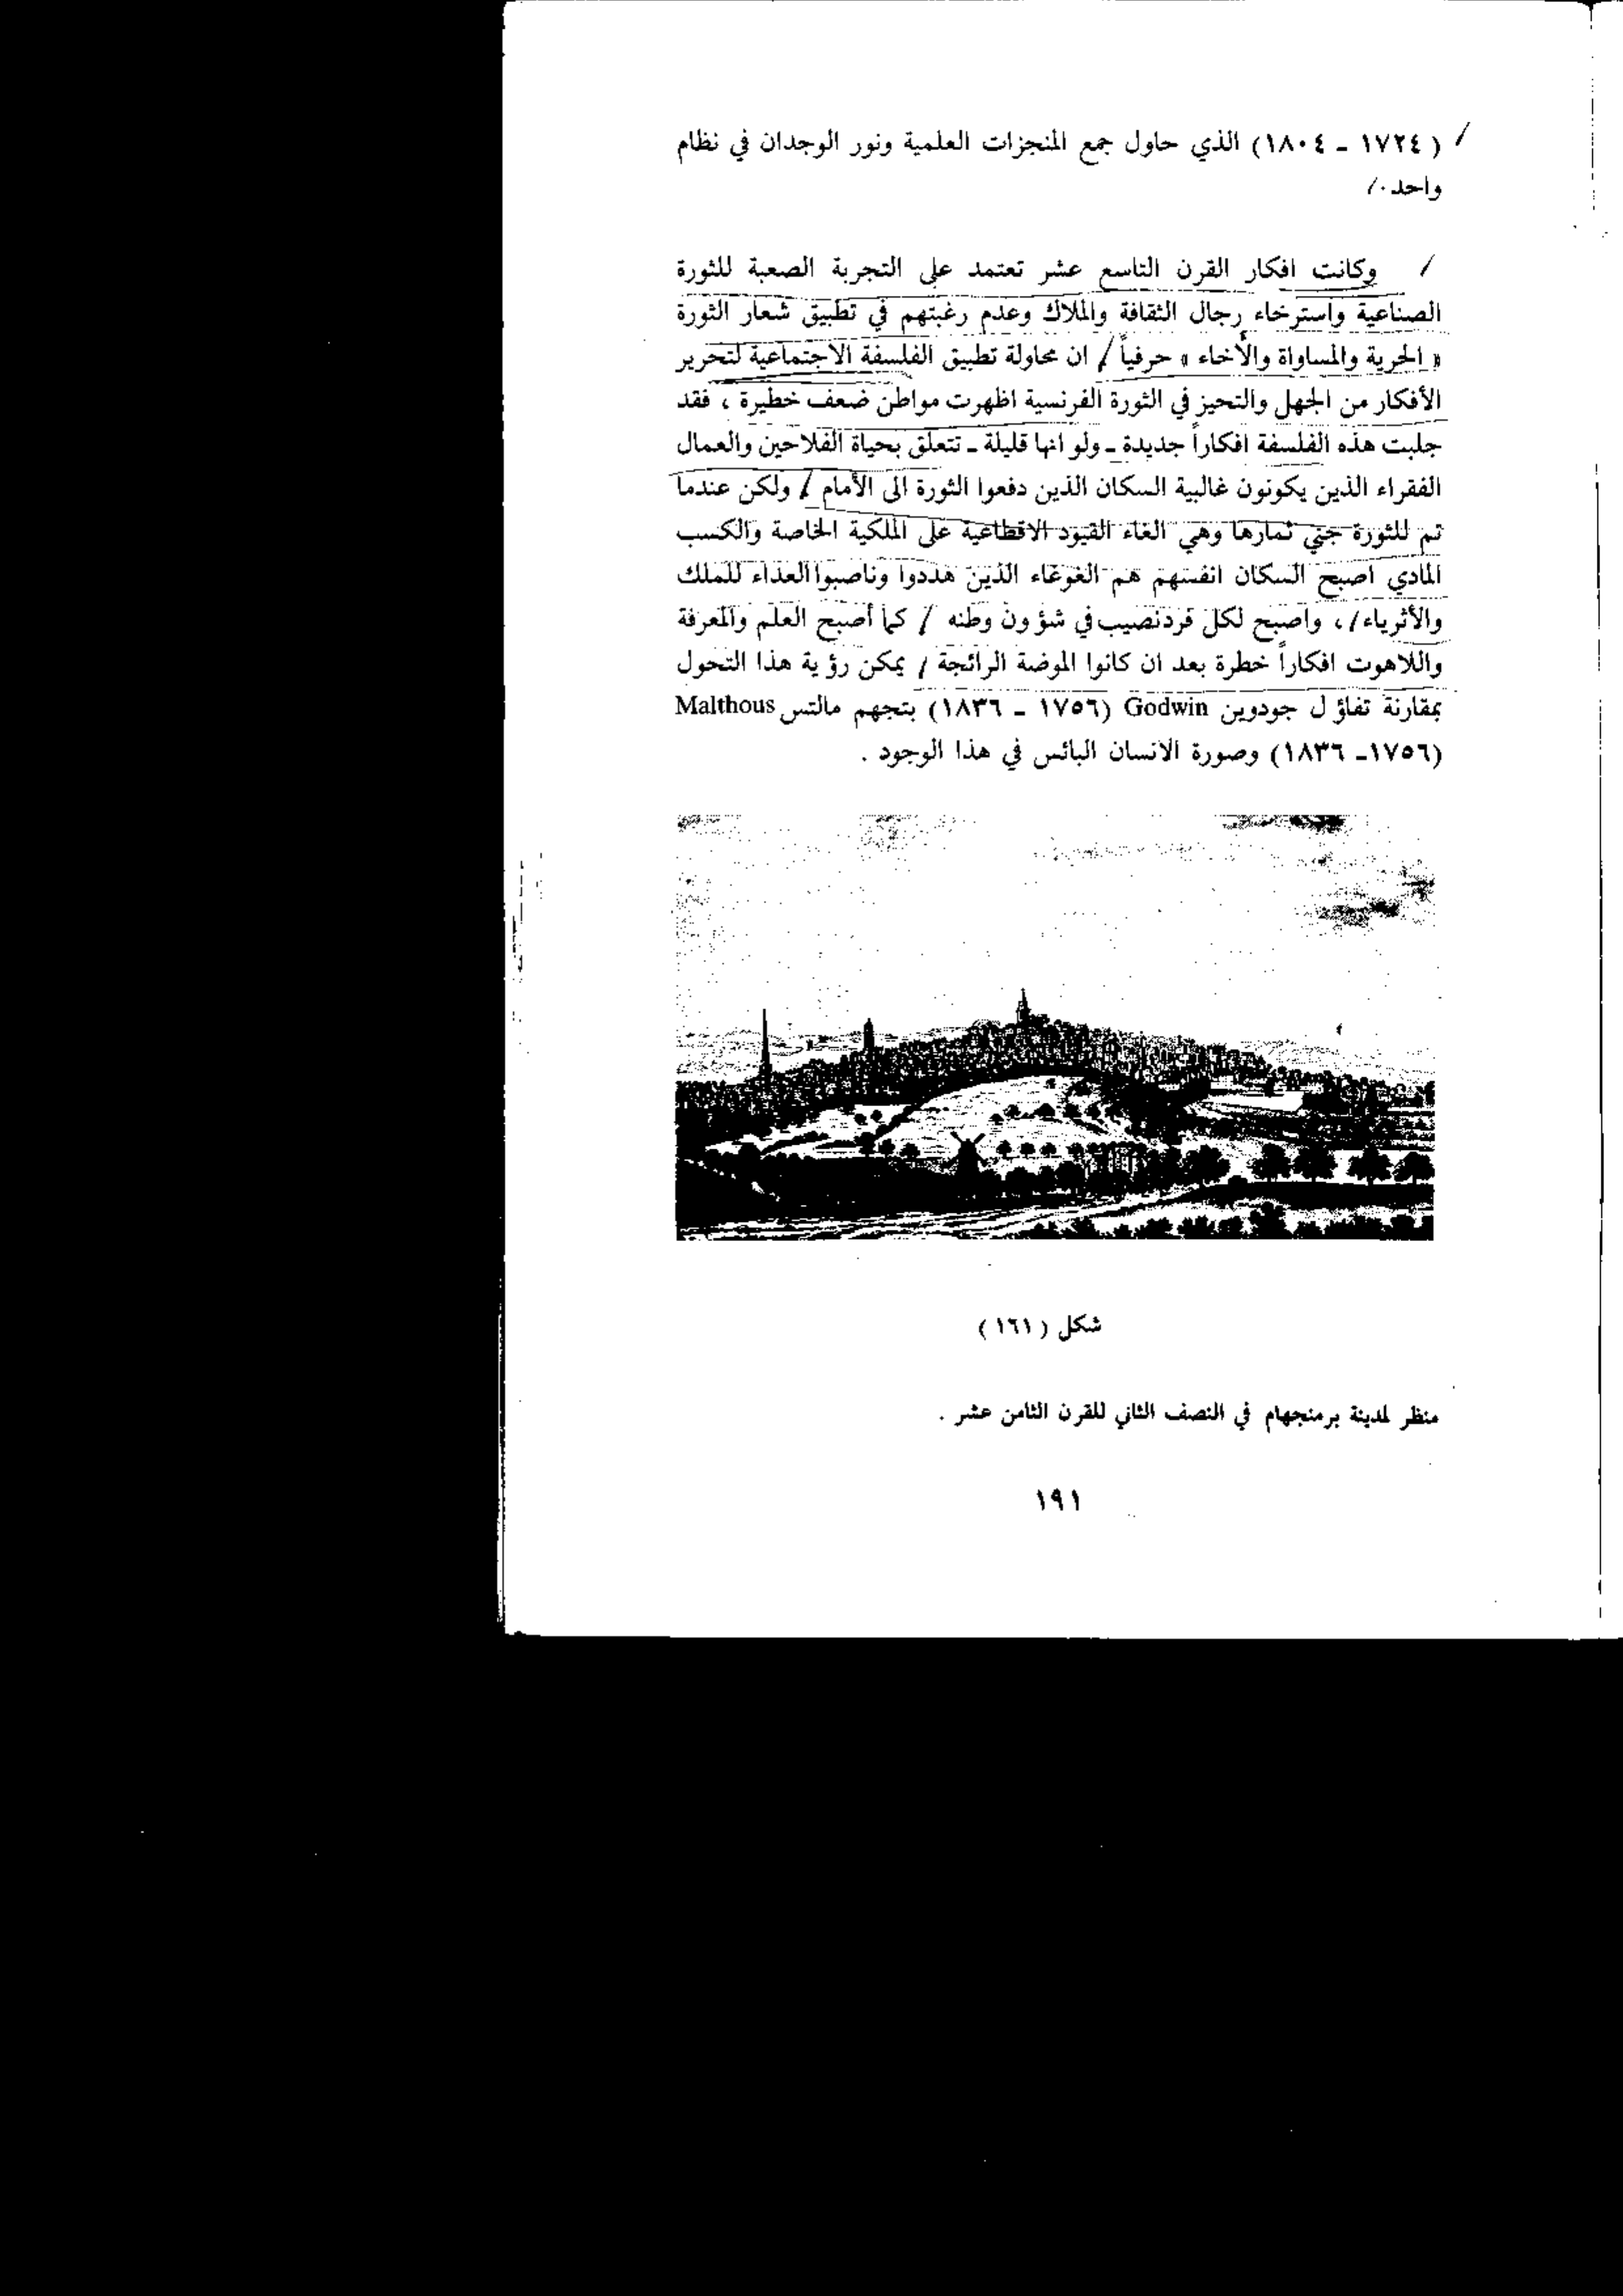 ( ١٧٢٤ ـ ١٨٠٤) الذي حاول جمع المنجزات العلمية ونور الوجدان في نظام
واحد .
وكانت افكار القرن التاسع عشر تعتمد على التجربة الصعبة للثورة
الصناعية واسترخاء رجال الثقافة والملاك وعدم رغبتهم في تطبيق شعار الثورة
« الحرية والمساواة والأخاء » حرفياً / ان محاولة تطبيق الفلسفة الاجتماعية لتحرير
الأفكار من الجهل والتحيز في الثورة الفرنسية اظهرت مواطن ضعف خطيرة ، فقد
جلبت هذه الفلسفة افكاراً جديدة ـ ولو انها قليلة ـ تتعلق بحياة الفلاحين والعمال
الفقراء الذين يكونون غالبية السكان الذين دفعوا الثورة الى الأمام / ولكن عندما
تم للثورة جني ثمارها وهي الغاء القيود الاقطاعية على الملكية الخاصة والكسب
المادي اصبح السكان انفسهم هم الغوغاء الذين هددوا وناصبوا العداء للملك
والأثرياء / ، واصبح لكل فرد نصيب في شؤون وطنه / كما أصبح العلم والمعرفة
واللاهوت افكاراً خطرة بعد ان كانوا الموضة الرائجة / يمكن رؤية هذا التحول
بمقارنة تفاؤل جودوين Godwin (١٧٥٦ ـ ١٨٣٦) بتجهم مالتس Malthous
(١٧٥٦ـ ١٨٣٦) وصورة الانسان البائس في هذا الوجود .
شكل ( ١٦١ )
منظر لمدينة برمنجهام في النصف الثاني للقرن الثامن عشر .
١٩١